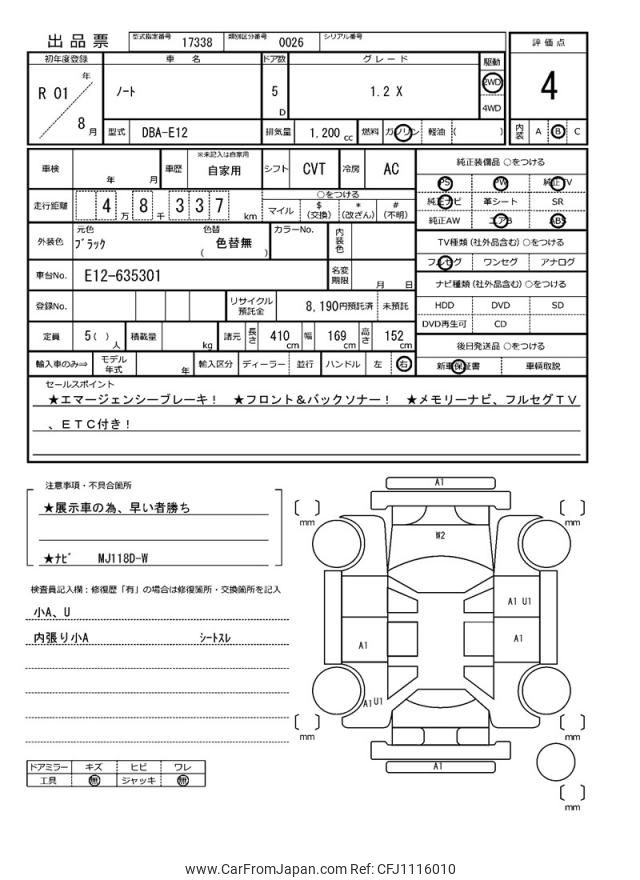 出品票 型式指定番号 17338 類別区分番号 0026 シリアル番号
評価点
4
内装 A B C
初年度登録 車名 ドア数 グレード 駆動
年
R 01 ノート 5 D 1.2 X 2WD
8 月 4WD
型式 DBA-E12 排気量 1.200 cc 燃料 ガソリン 軽油 ( )
車検 年 月 車歴 ※未記入は自家用 自家用 シフト CVT 冷房 AC
走行距離 4 万 8 千 3 3 7 km
○をつける
マイル $ (交換) * (改ざん) # (不明)
外装色 元色 ブラック 色替 ( 色替無 ) カラーNo. 内装色
車台No. E12-635301 名変期限 月 日
登録No. リサイクル預託金 8,190円預託済 未預託
定員 5( ) 人 積載量 kg 諸元 長さ 410 cm 幅 169 cm 高さ 152 cm
輸入車のみ⇒ モデル年式 年 輸入区分 ディーラー 並行 ハンドル 左 右
純正装備品 ○をつける
PS PW 純正TV
純正ナビ 革シート SR
純正AW エアB ABS
TV種類 (社外品含む) ○をつける
フルセグ ワンセグ アナログ
ナビ種類 (社外品含む) ○をつける
HDD DVD SD
DVD再生可 CD
後日発送品 ○をつける
新車保証書 車輌取説
セールスポイント
★エマージェンシーブレーキ! ★フロント&バックソナー! ★メモリーナビ、フルセグTV
、ETC付き!
注意事項・不具合箇所
★展示車の為、早い者勝ち
★ナビ MJ118D-W
検査員記入欄:修復歴「有」の場合は修復箇所・交換箇所を記入
小A、U
内張り小A シートスレ
ドアミラー キズ ヒビ ワレ
工具 無 ジャッキ 無
A1
mm
mm
W2
A1 U1
A1
A1
A1 U1
mm
mm
A1
mm
www.CarFromJapan.com Ref: CFJ1116010